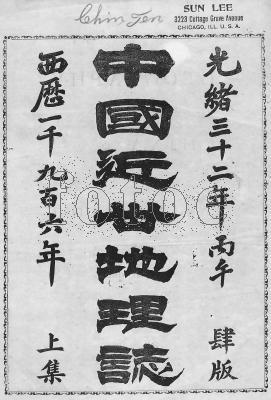 Chin Fen
SUN LEE
3223 Cottage Grove Avenue
CHICAGO, ILL. U. S. A.
光緒三十二年丙午 肆版
中國近世地理誌
西歷一千九百六年 上集
fotoe